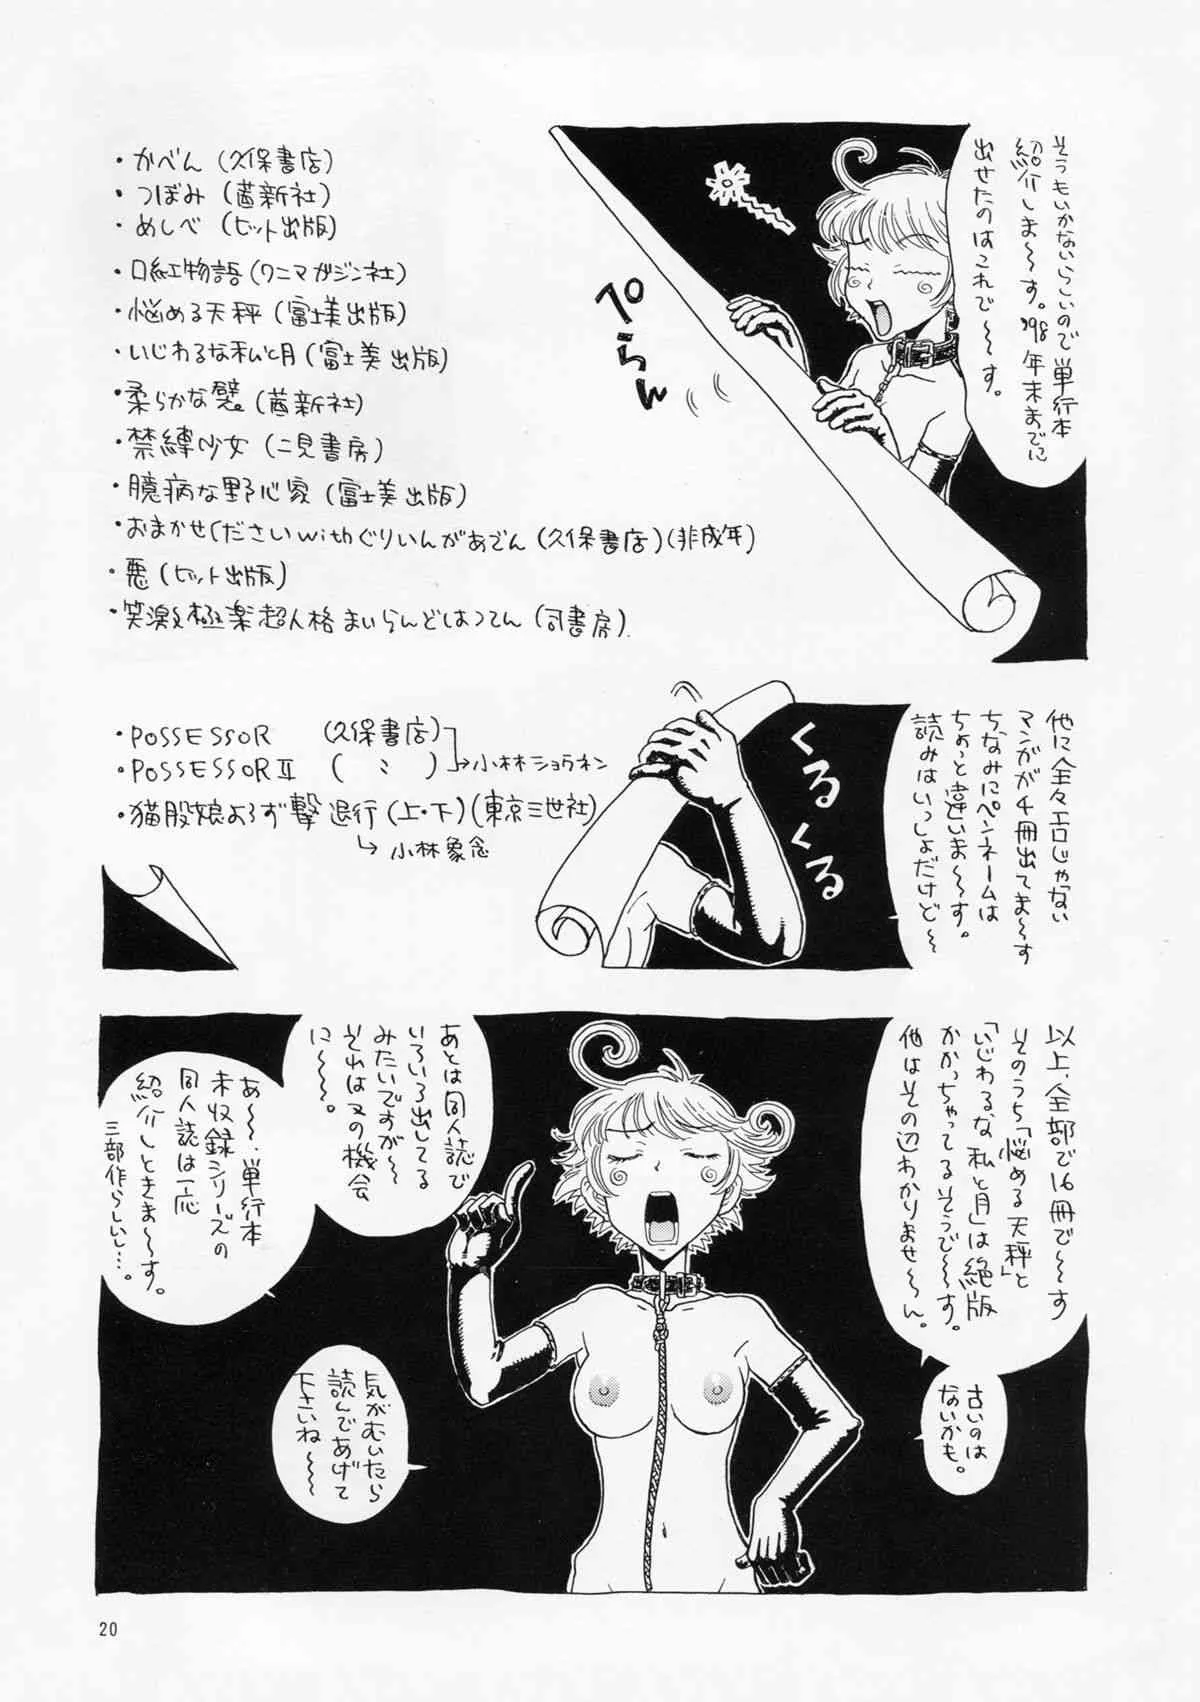 そうもいかないらしいので単行本
紹介しま〜す。'98年末までに
出せたのはこれで〜〜す。
ぺらん
・かべん(久保書店)
・つぼみ(茜新社)
・めしべ(ヒット出版)
・口紅物語(ワニマガジン社)
・悩める天秤(富士美出版)
・いじわるな私と月(富士美出版)
・柔らかな躄。(茜新社)
・禁縛少女(二見書房)
・臆病な野心家(富士美出版)
・おまかせくださいwithぐりいんがあでん(久保書店)(非成年)
・悪(ヒット出版)
・笑激と極楽超人格まいらんどはつでん(司書房)
他に全々エロじゃない
マンガが4冊出てま〜〜す
ちなみにペンネームは
ちょっと違いま〜〜す。
読みはいっしょだけど〜
くるくる
・POSSESSOR (久保書店)
・POSSESSORⅡ ( 〃 )
→小林ショウネン
・猫股娘よろず撃退行(上・下)(東京三世社)
→小林象念
以上、全部で16冊で〜〜す
そのうち「悩める天秤」と
「いじわるな私と月」は絶版
かかっちゃってるそうで〜〜す。
他はその辺わかりませ〜ん。
古いのは
ないかも。
あとは同人誌で
いろいろ出してる
みたいですが〜
それは又の機会
に〜〜。
あ〜、単行本
未収録シリーズの
同人誌は一応
紹介しときま〜〜す。
三部作らしいし…。
気がむいたら
読んであげて
下さいね〜〜
20